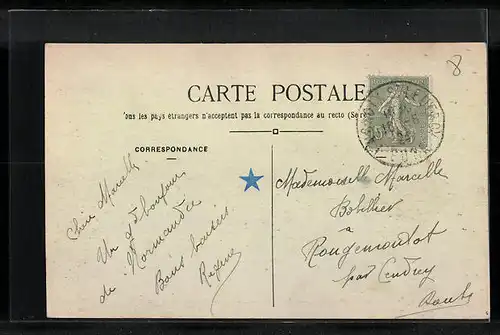 8
CARTE POSTALE
ous les pays étrangers n'acceptent pas la correspondance au recto (Se
CORRESPONDANCE
Chère Marcelle
Un g^d bonjour
de Normandie
Bons baisers
Mademoiselle Marcelle
Bobillier
à
Rougemontot
par Cendrey
Doubs